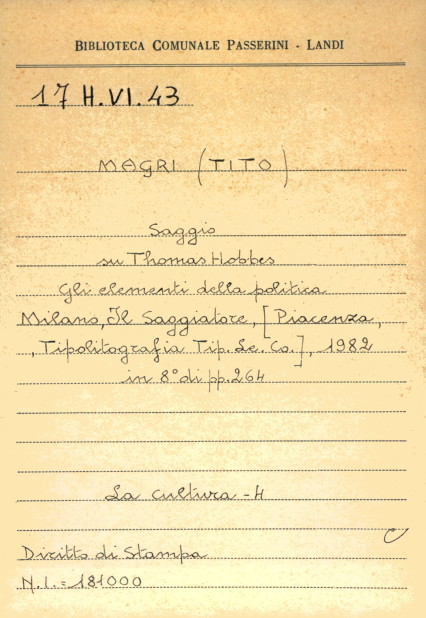 BIBLIOTECA COMUNALE PASSERINI - LANDI
17 H.VI.43
MAGRI (TITO)
Saggio
su Thomas Hobbes
Gli elementi della politica
Milano, Il Saggiatore, [Piacenza,
, Tipolitografia Tip. Le. Co.], 1982
in 8° di pp. 264
La cultura - 4
C
Diritto di Stampa
N. I. = 181000